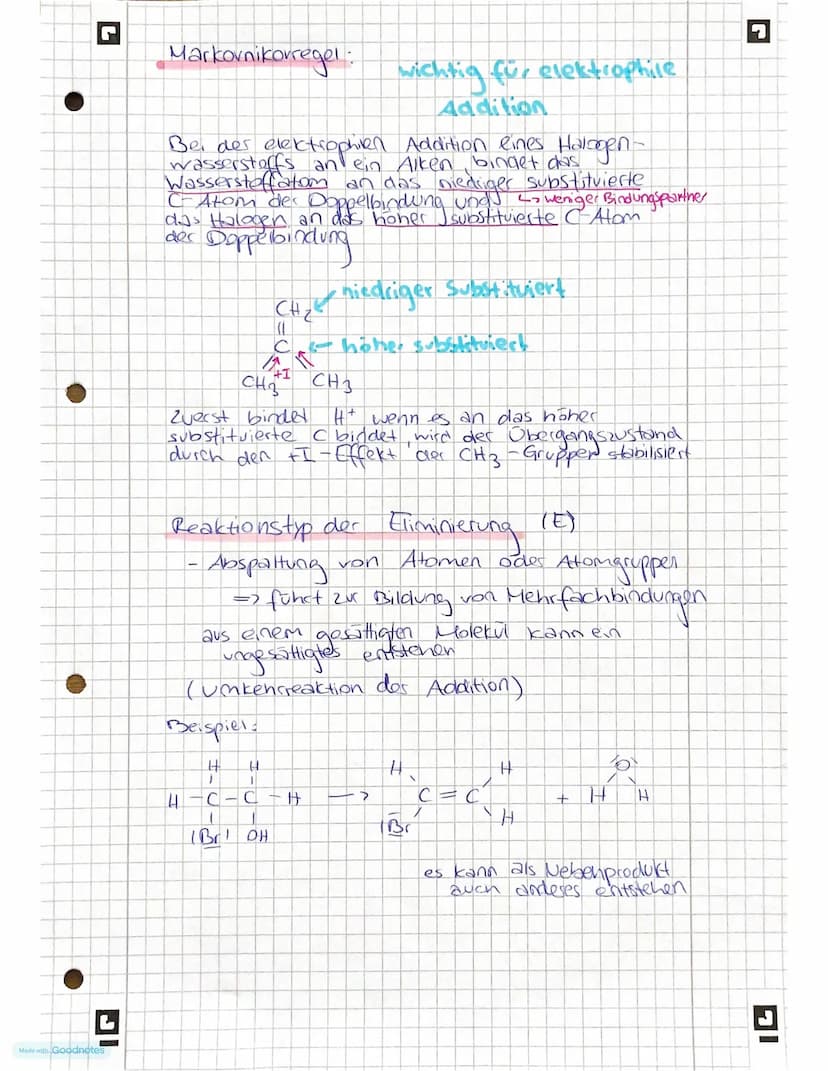 Markovnikovregel:
wichtig für elektrophile
Addition
Bei der elektrophilen Addition eines Halogen-
wasserstoffs an ein Alken binget das
Wasserstoffatom an das niediger substituierte
C-Atom der Doppelbindung und ↳ weniger Bindungspartner
das Halogen an das höher substituierte C-Atom
der Doppelbindung
CH2 niedriger substituiert
||
C ← höher substituiert
+I
CH3 CH3
Zuerst bindet H+ wenn es an das höher
substituierte C biddet, wird der Übergangszustand
durch den +I-Effekt der CH3-Gruppen stabilisiert
Reaktionstyp der Eliminierung (E)
- Abspaltung von Atomen oder Atomgruppen
=> führt zur Bildung von Mehrfachbindungen
aus einem gesättigten Molekül kann ein
ungesättigtes entstehen
(Umkehrreaktion der Addition)
Beispiel:
H H H H O
H - C - C - H → C = C + H H
|Br| OH |Br H
es kann als Nebenprodukt
auch anderes entstehen
Made with Goodnotes